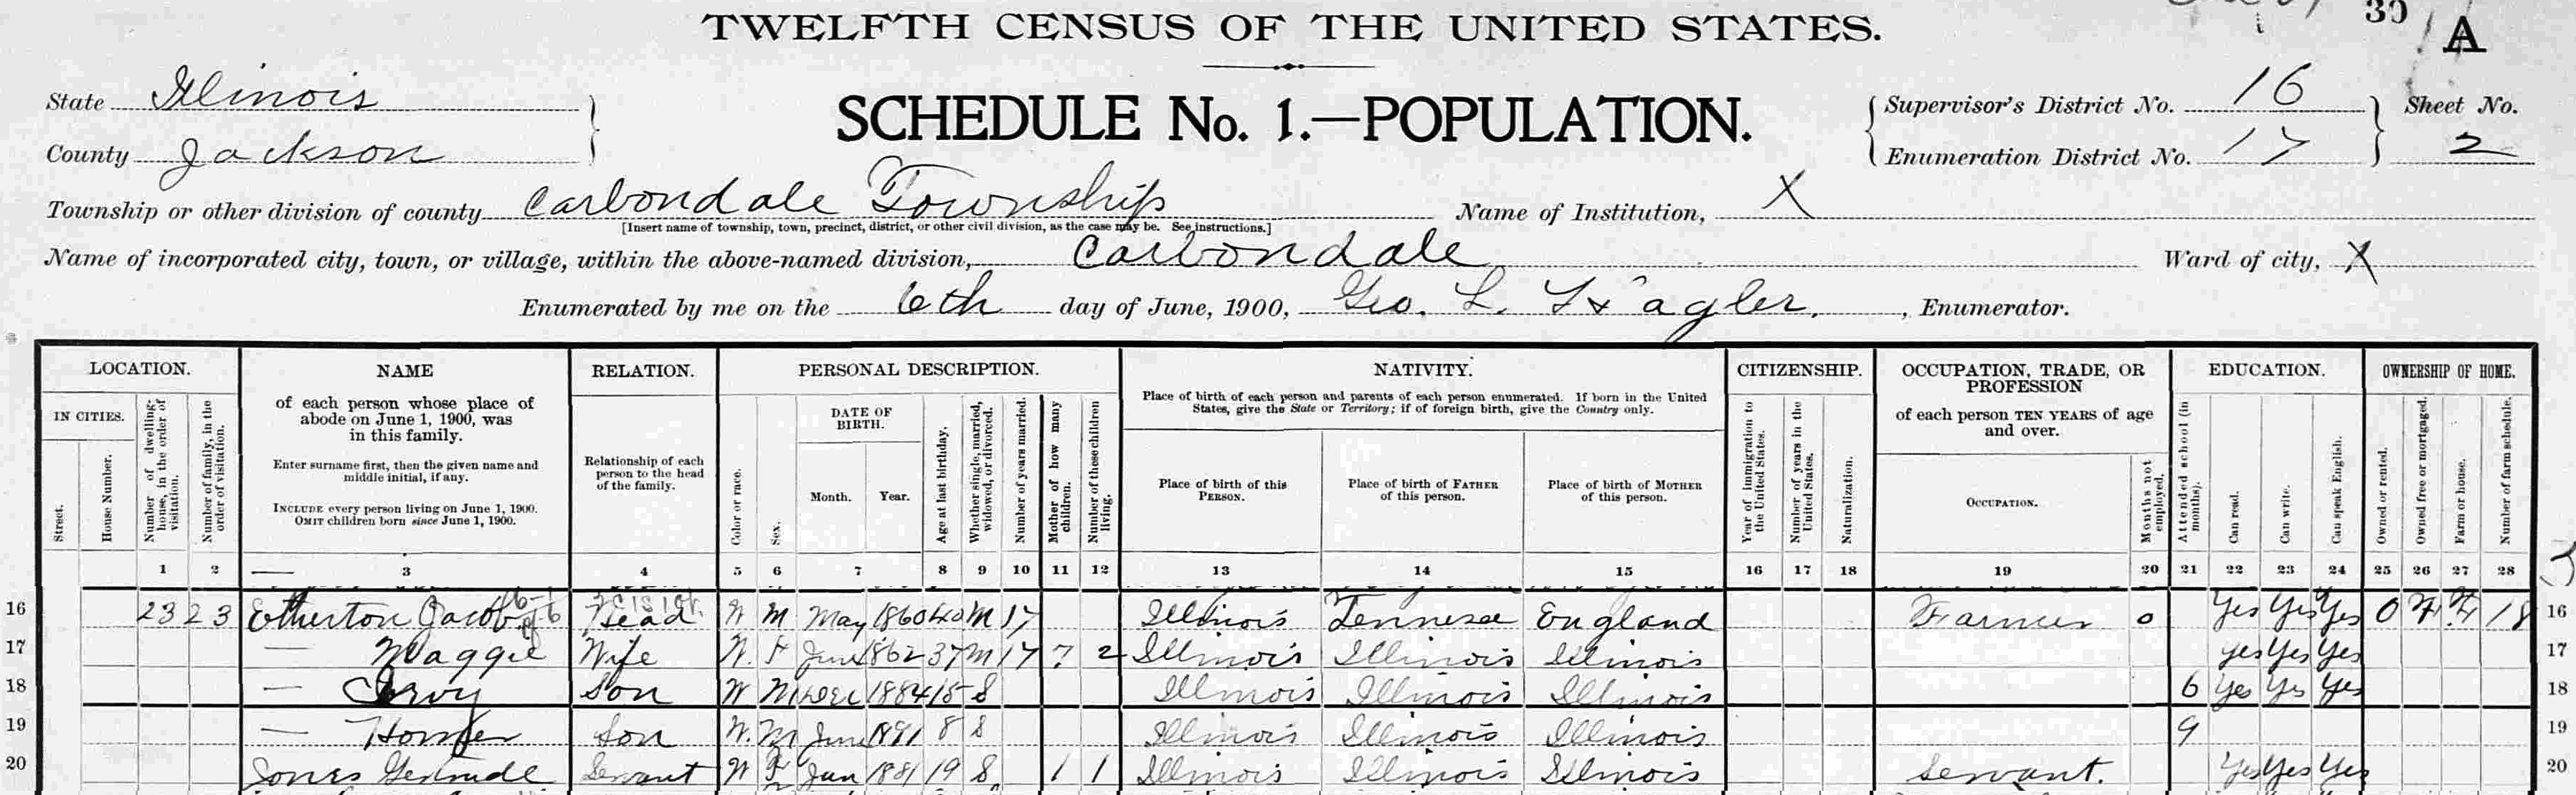 30 A
TWELFTH CENSUS OF THE UNITED STATES.
State Illinois
County Jackson
SCHEDULE No. 1.—POPULATION.
Supervisor's District No. 16
Enumeration District No. 17
Sheet No.
2
Township or other division of county Carbondale Township
[Insert name of township, town, precinct, district, or other civil division, as the case may be. See instructions.]
Name of Institution, X
Name of incorporated city, town, or village, within the above-named division, Carbondale
Ward of city, X
Enumerated by me on the 6th day of June, 1900, Geo. L. , Enumerator.
LOCATION.
IN CITIES.
Street.
House Number.
Number of dwelling-house, in the order of visitation.
Number of family, in the order of visitation.
NAME
of each person whose place of
abode on June 1, 1900, was
in this family.
Enter surname first, then the given name and
middle initial, if any.
INCLUDE every person living on June 1, 1900.
OMIT children born since June 1, 1900.
RELATION.
Relationship of each
person to the head
of the family.
PERSONAL DESCRIPTION.
Color or race.
Sex.
DATE OF
BIRTH.
Month. Year.
Age at last birthday.
Whether single, married, widowed, or divorced.
Number of years married.
Mother of how many children.
Number of these children living.
NATIVITY.
Place of birth of each person and parents of each person enumerated. If born in the United
States, give the State or Territory; if of foreign birth, give the Country only.
Place of birth of this
PERSON.
Place of birth of FATHER
of this person.
Place of birth of MOTHER
of this person.
CITIZENSHIP.
Year of immigration to the United States.
Number of years in the United States.
Naturalization.
OCCUPATION, TRADE, OR
PROFESSION
of each person TEN YEARS of age
and over.
OCCUPATION.
Months not employed.
EDUCATION.
Attended school (in months).
Can read.
Can write.
Can speak English.
OWNERSHIP OF HOME.
Owned or rented.
Owned free or mortgaged.
Farm or house.
Number of farm schedule.
1 2 3 4 5 6 7 8 9 10 11 12 13 14 15 16 17 18 19 20 21 22 23 24 25 26 27 28
16 23 23 Etherton Jacob Head W M May 1860 40 M 17 Illinois Tennessee England Farmer 0 Yes Yes Yes O F F 18 16
17 — Maggie Wife W. F June 1862 37 M 17 7 2 Illinois Illinois Illinois yes Yes Yes 17
18 — Son W M Dec 1884 15 S Illinois Illinois Illinois 6 Yes Yes Yes 18
19 — Homer Son W. M June 1891 8 S Illinois Illinois Illinois 9 19
20 Jones Gertrude Servant W F Jan 1881 19 S 1 1 Illinois Illinois Illinois Servant. Yes Yes Yes 20